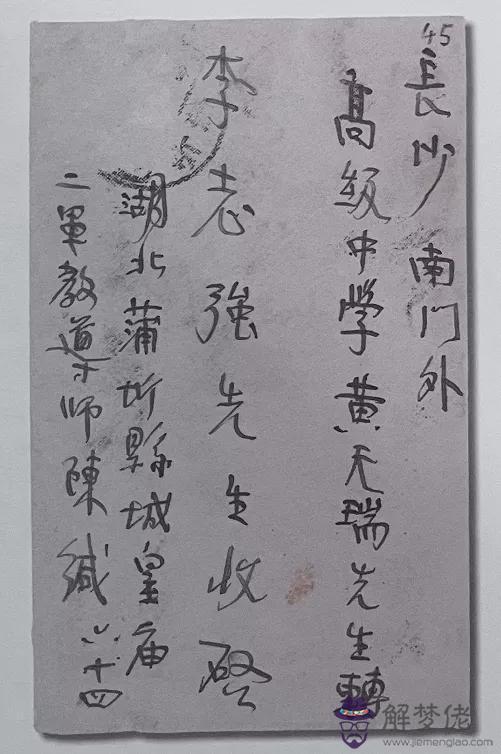 45
長沙南门外
高級中学黄天瑞先生轉
李志強先生收啓
湖北蒲圻縣城皇庙
二軍教導师陳緘 六十四
解梦佬
www.jiemenglao.com